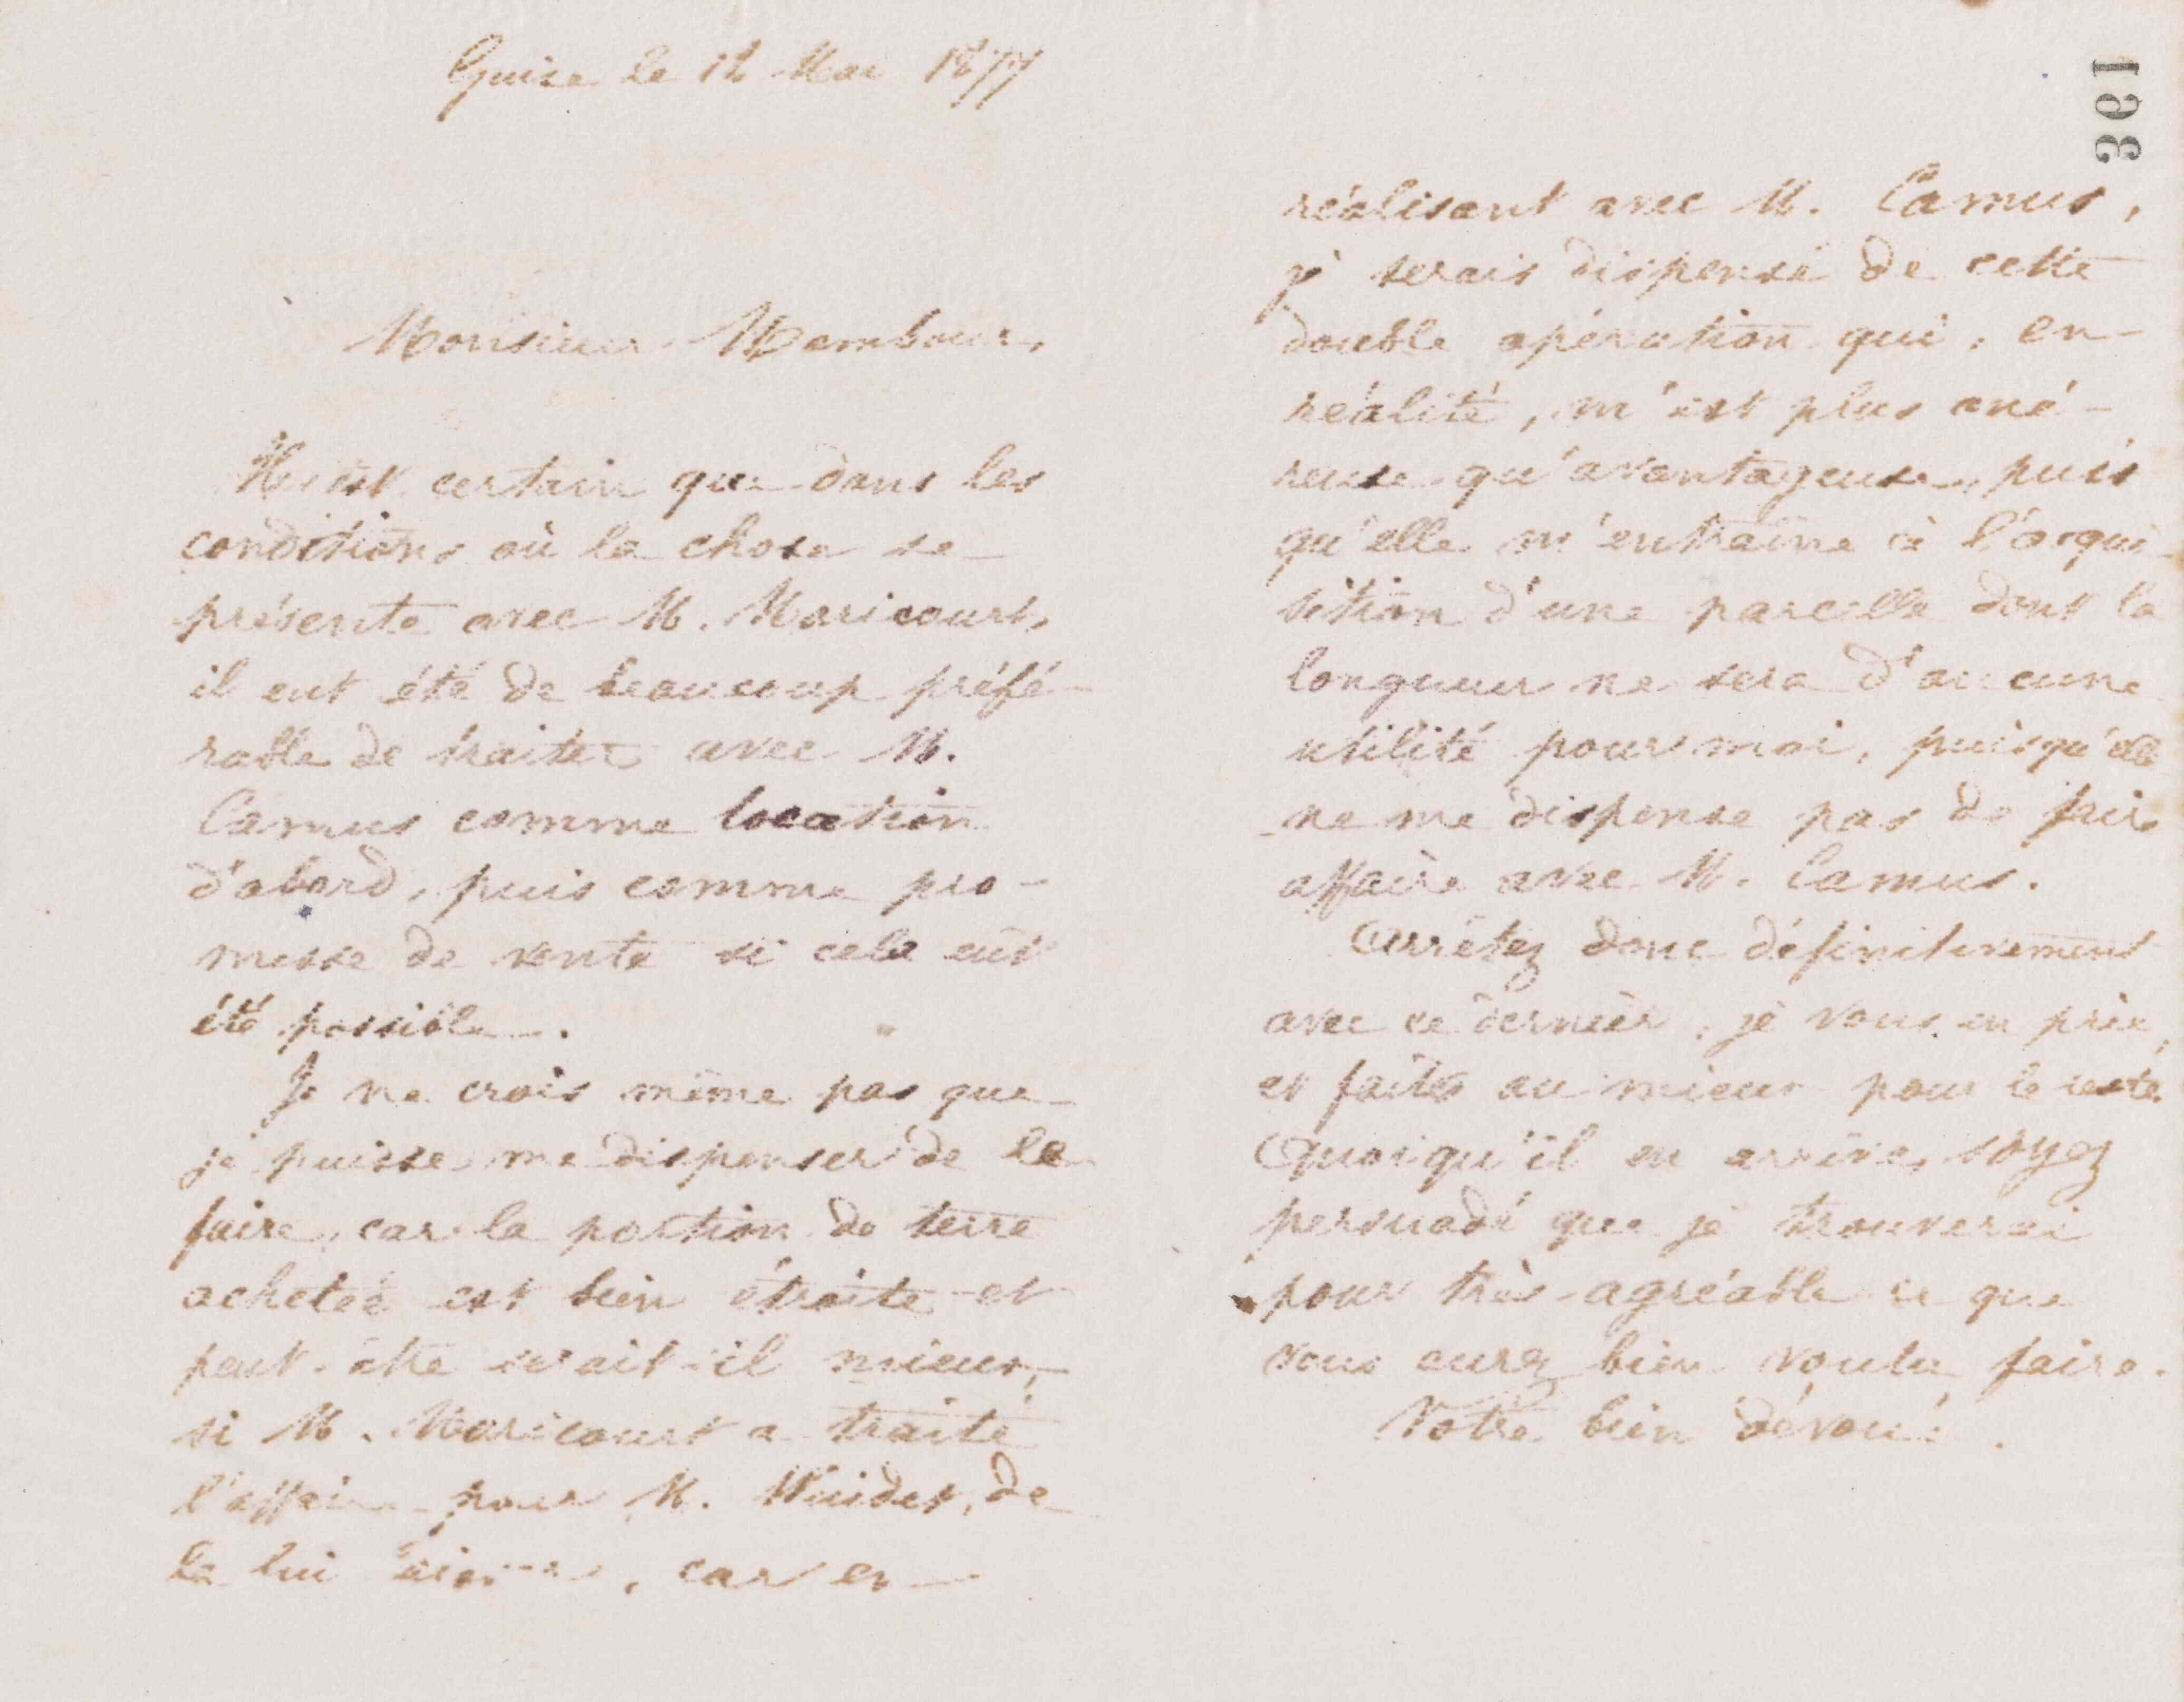 Guise le 12 Mai 1877
Monsieur Mambour,
Il est certain que dans les
conditions où la chose se
présente avec M. Maricourt,
il eut été de beaucoup préfé-
rable de traiter avec M.
Camus comme location
d'abord, puis comme pro-
messe de vente si cela eût
été possible.
Je ne crois même pas que
je puisse me dispenser de le
faire, car la portion de terre
achetée est bien étroite et
peut-être serait-il mieux,
si M. Maricourt a traité
l'affaire pour M. de
la lui , car en
361
réalisant avec M. Camus,
je serais dispensé de cette
double opération qui, en
réalité, m'est plus oné-
reuse qu'avantageuse, puis
qu'elle m'entraîne à l'acqui-
sition d'une parcelle dont la
longueur ne sera d'aucune
utilité pour moi, puisqu'elle
ne me dispense pas de faire
affaire avec M. Camus.
Arrêtez donc définitivement
avec ce dernier, je vous en prie,
et faites au mieux pour le reste.
Quoiqu'il en arrive, soyez
persuadé que je trouverai
pour très agréable ce que
vous aurez bien voulu faire.
Votre bien dévoué.